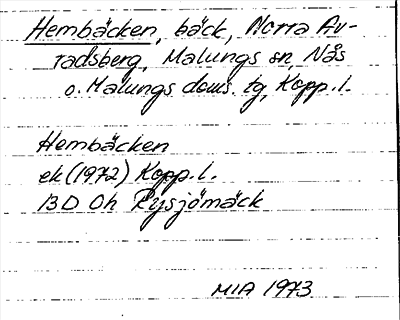 Hembäcken, bäck, Norra Av-
radsberg, Malungs sn, Nås
o. Malungs doms. tg, Kopp. l.
Hembäcken
ek (1972) Kopp. l.
13 D 0h Rysjömäck
MIA 1973